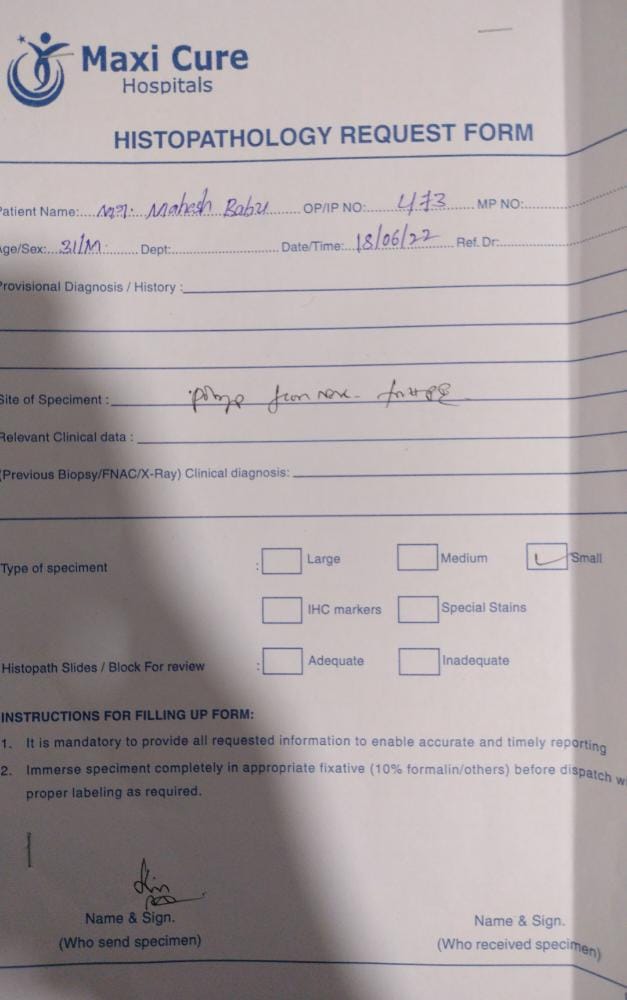 Maxi Cure
Hospitals
HISTOPATHOLOGY REQUEST FORM
Patient Name:.... Mr. Mahesh Babu ........ OP/IP NO:...... 473 ...... MP NO:
Age/Sex:.. 31/M ....... Dept:........................ Date/Time:.. 18/06/22 ... Ref. Dr:
Provisional Diagnosis / History :
Site of Specimen : polyp from
Relevant Clinical data :
(Previous Biopsy/FNAC/X-Ray) Clinical diagnosis:
Type of speciment : Large Medium Small
IHC markers Special Stains
Histopath Slides / Block For review : Adequate Inadequate
INSTRUCTIONS FOR FILLING UP FORM:
1. It is mandatory to provide all requested information to enable accurate and timely reporting
2. Immerse speciment completely in appropriate fixative (10% formalin/others) before dispatch w
proper labeling as required.
Name & Sign. Name & Sign.
(Who send specimen) (Who received specimen)